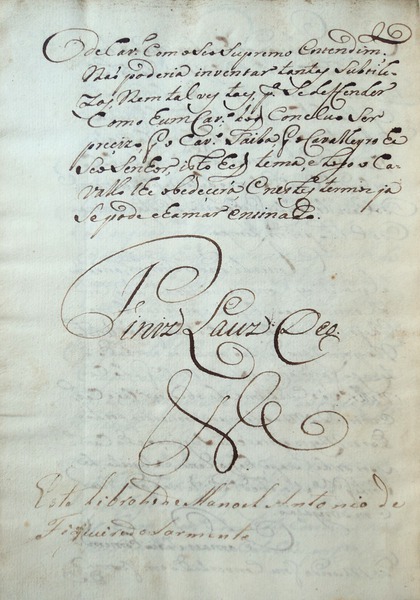 de Cav.º Com o Seo Supremo Entendim.
Não poderia inventar tantas Subtile-
Zas Nem talvez tas p.ª Se defender
Como Eu Concluo Ser
precizo q o Cav.º Saiba q o Cavalleyro Es
Seo Senhor, isto he q tema, e logo o Ca-
vallo lhe obedecerá E nestes termos já
Se pode chamar ensinado.
Finiz Lauz Deo.
Este Libro he de Manoel Antonio de
Figueiredo Sarmento